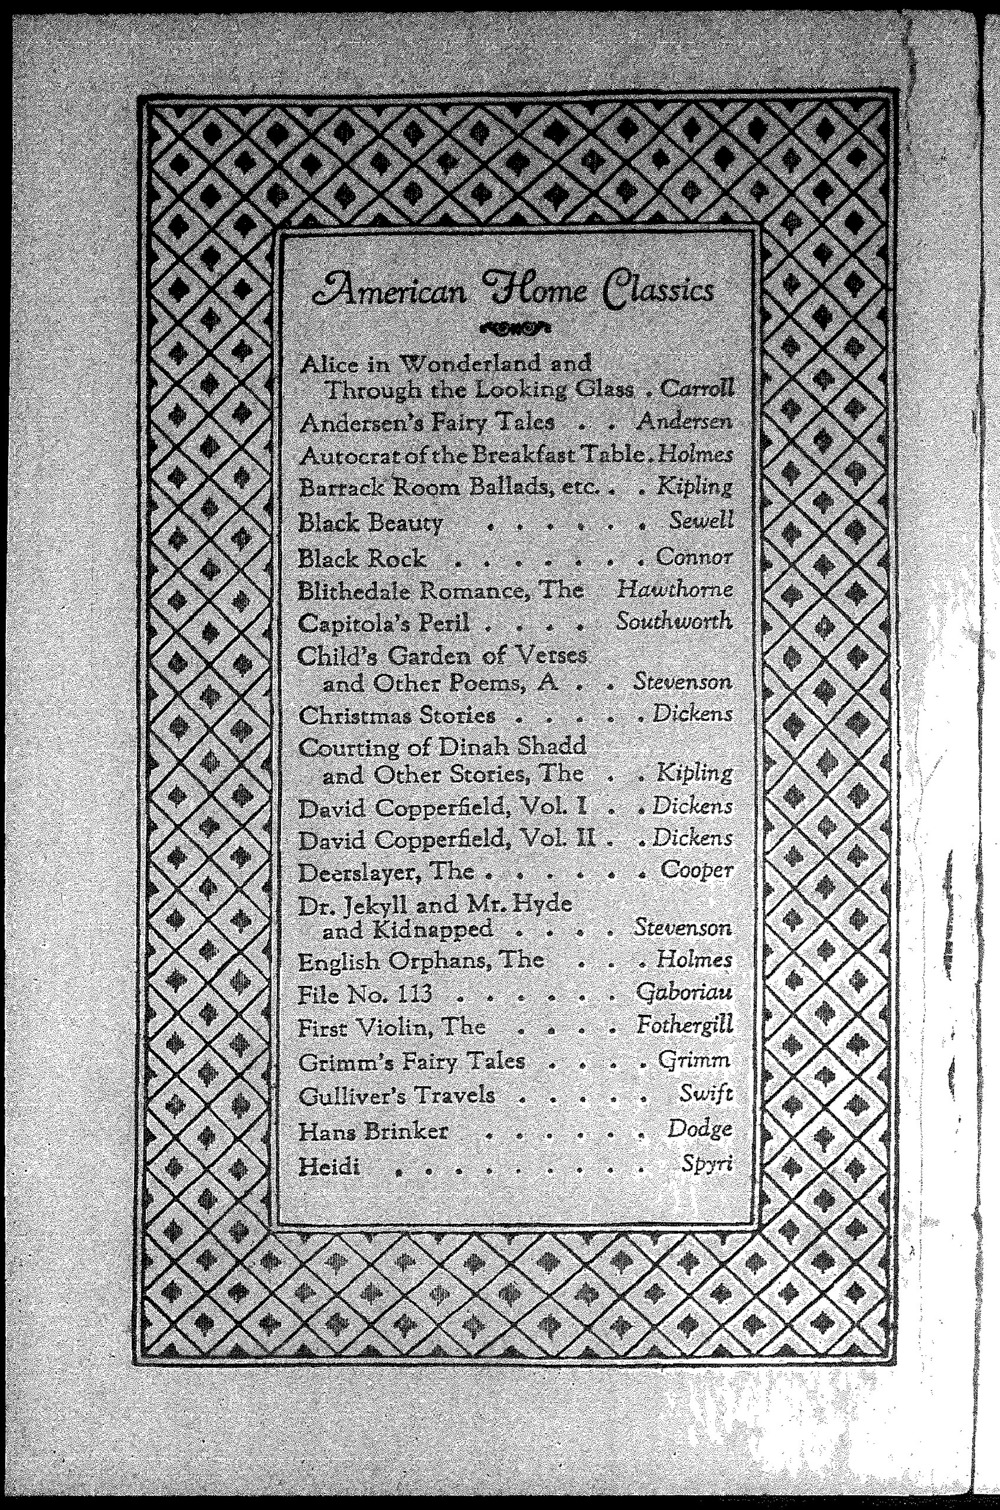 American Home Classics
Alice in Wonderland and
Through the Looking Glass . Carroll
Andersen's Fairy Tales . . Andersen
Autocrat of the Breakfast Table . Holmes
Barrack Room Ballads, etc. . . Kipling
Black Beauty . . . . . . Sewell
Black Rock . . . . . . . Connor
Blithedale Romance, The Hawthorne
Capitola's Peril . . . . Southworth
Child's Garden of Verses
and Other Poems, A . . Stevenson
Christmas Stories . . . . . Dickens
Courting of Dinah Shadd
and Other Stories, The . . Kipling
David Copperfield, Vol. I . . Dickens
David Copperfield, Vol. II . . Dickens
Deerslayer, The . . . . . . Cooper
Dr. Jekyll and Mr. Hyde
and Kidnapped . . . . Stevenson
English Orphans, The . . . Holmes
File No. 113 . . . . . . Gaboriau
First Violin, The . . . . Fothergill
Grimm's Fairy Tales . . . . Grimm
Gulliver's Travels . . . . . Swift
Hans Brinker . . . . . . Dodge
Heidi . . . . . . . . . Spyri